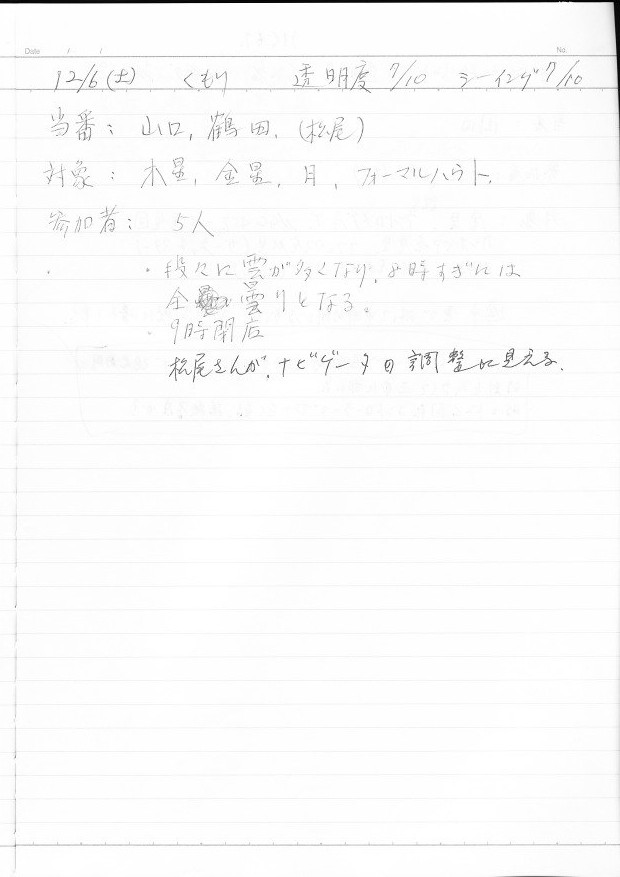 Date / / No.
12/6(土) くもり 透明度 7/10 シーイング 7/10
当番: 山口, 鶴田, (松尾)
対象: 木星, 金星, 月, フォーマルハウト,
参加者: 5人
・段々に雲が多くなり, 8時すぎには
全曇りとなる。
9時閉店
松尾さんが, ナビゲータの調整に見える.